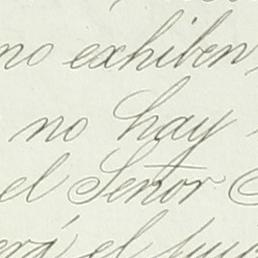 no exhiben
no hay
el Señor
el